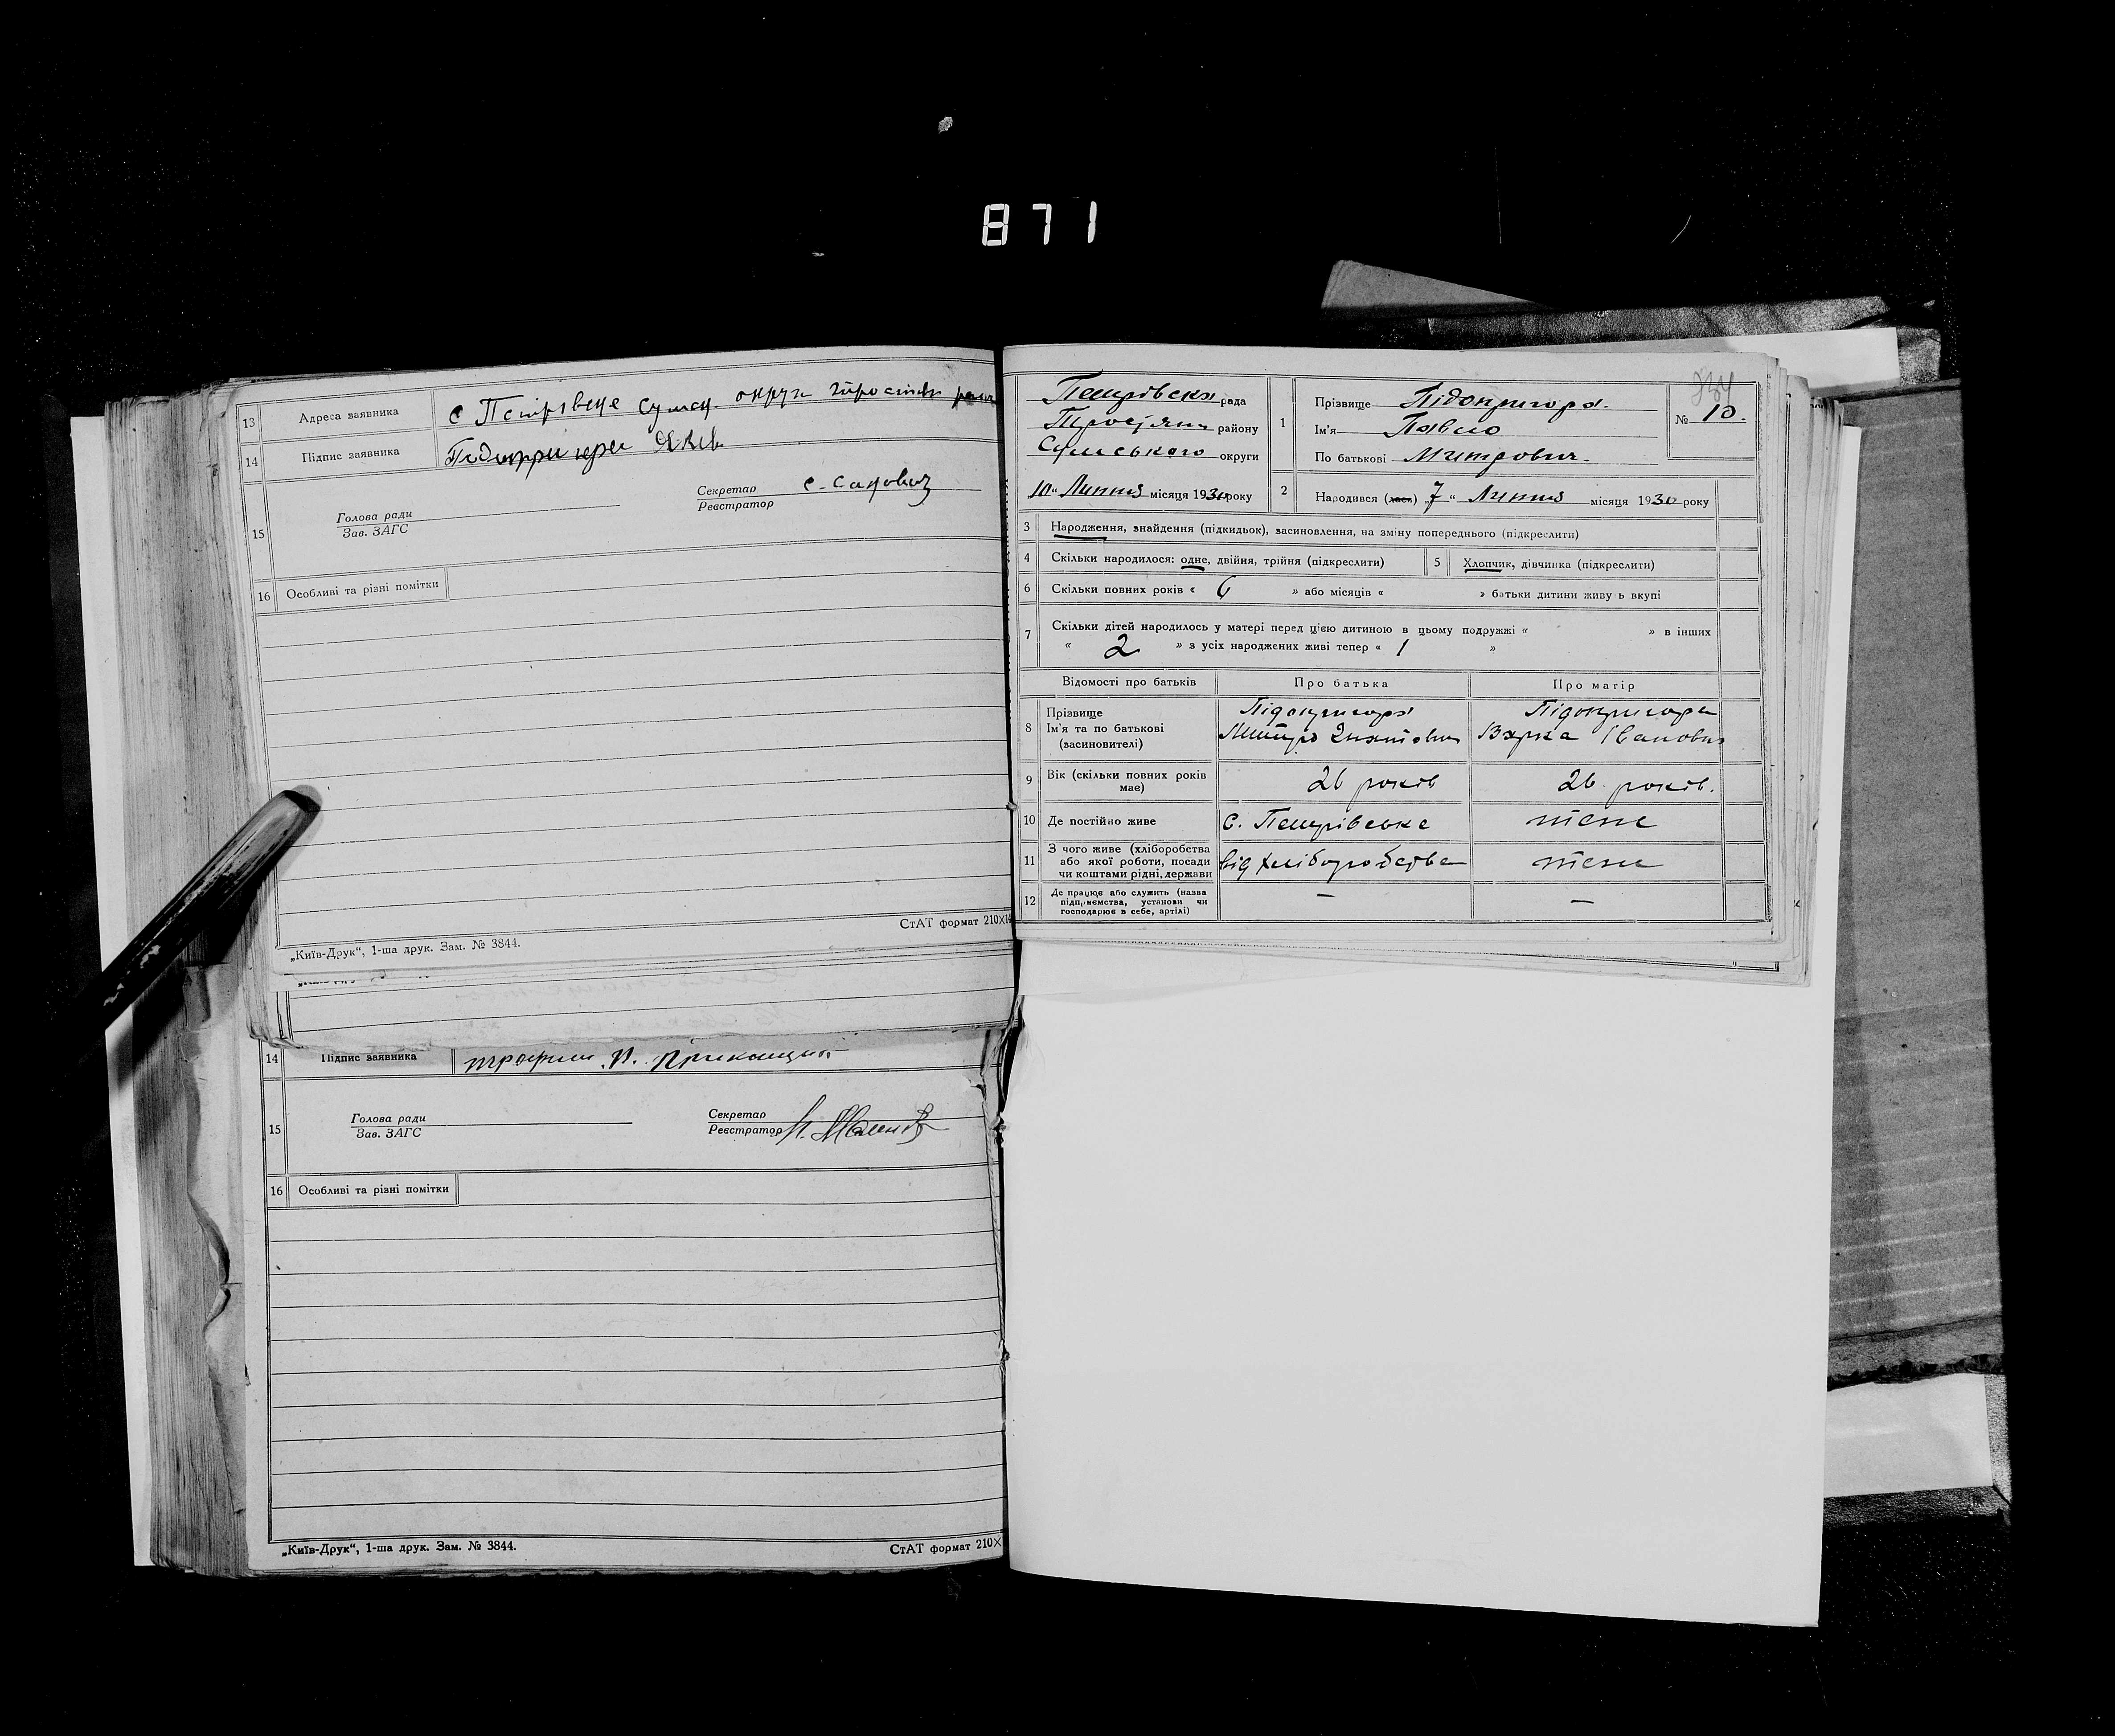 871
13 Адреса заявника с Петрівське Сумськ. округи
14 Підпис заявника
15 Голова ради
Зав. ЗАГС
Секретар
Реєстратор
16 Особливі та різні помітки
СтАТ формат 210×
„Київ-Друк“, 1-ша друк. Зам. № 3844.
14 Підпис заявника
15 Голова ради
Зав. ЗАГС
Секретар
Реєстратор
16 Особливі та різні помітки
„Київ-Друк“, 1-ша друк. Зам. № 3844.
СтАТ формат 210×
Петрівська рада
району
Сумського округи
„10“ Липня місяця 1930 року
1 Прізвище Підопригора.
Ім'я Павло
По батькові Митрович.
№ 10.
2 Народився (лась) 7 “ Липня місяця 1930 року
3 Народження, знайдення (підкидьок), засиновлення, на зміну попереднього (підкреслити)
4 Скільки народилося: одне, двійня, трійня (підкреслити)
5 Хлопчик, дівчинка (підкреслити)
6 Скільки повних років « 6 » або місяців « » батьки дитини живуть вкупі
7 Скільки дітей народилось у матері перед цією дитиною в цьому подружжі « » в інших
« 2 » з усіх народжених живі тепер « 1 »
Відомості про батьків Про батька Про матір
8 Прізвище Підопригора Підопригора
Ім'я та по батькові Митро Гнатович Варка Івановна
(засиновителі)
9 Вік (скільки повних років має) 26 років 26 років.
10 Де постійно живе с. Петрівське теж
11 З чого живе (хліборобства
або якої роботи, посади від хліборобства теж
чи коштами рідні, держави
12 Де працює або служить (назва
підприємства, установи чи — —
господарює в себе, артілі)